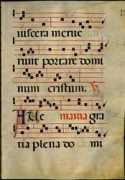 uiscera merue
runt portare domi
num cristum. V
Aue maria gra
tia plena do mi